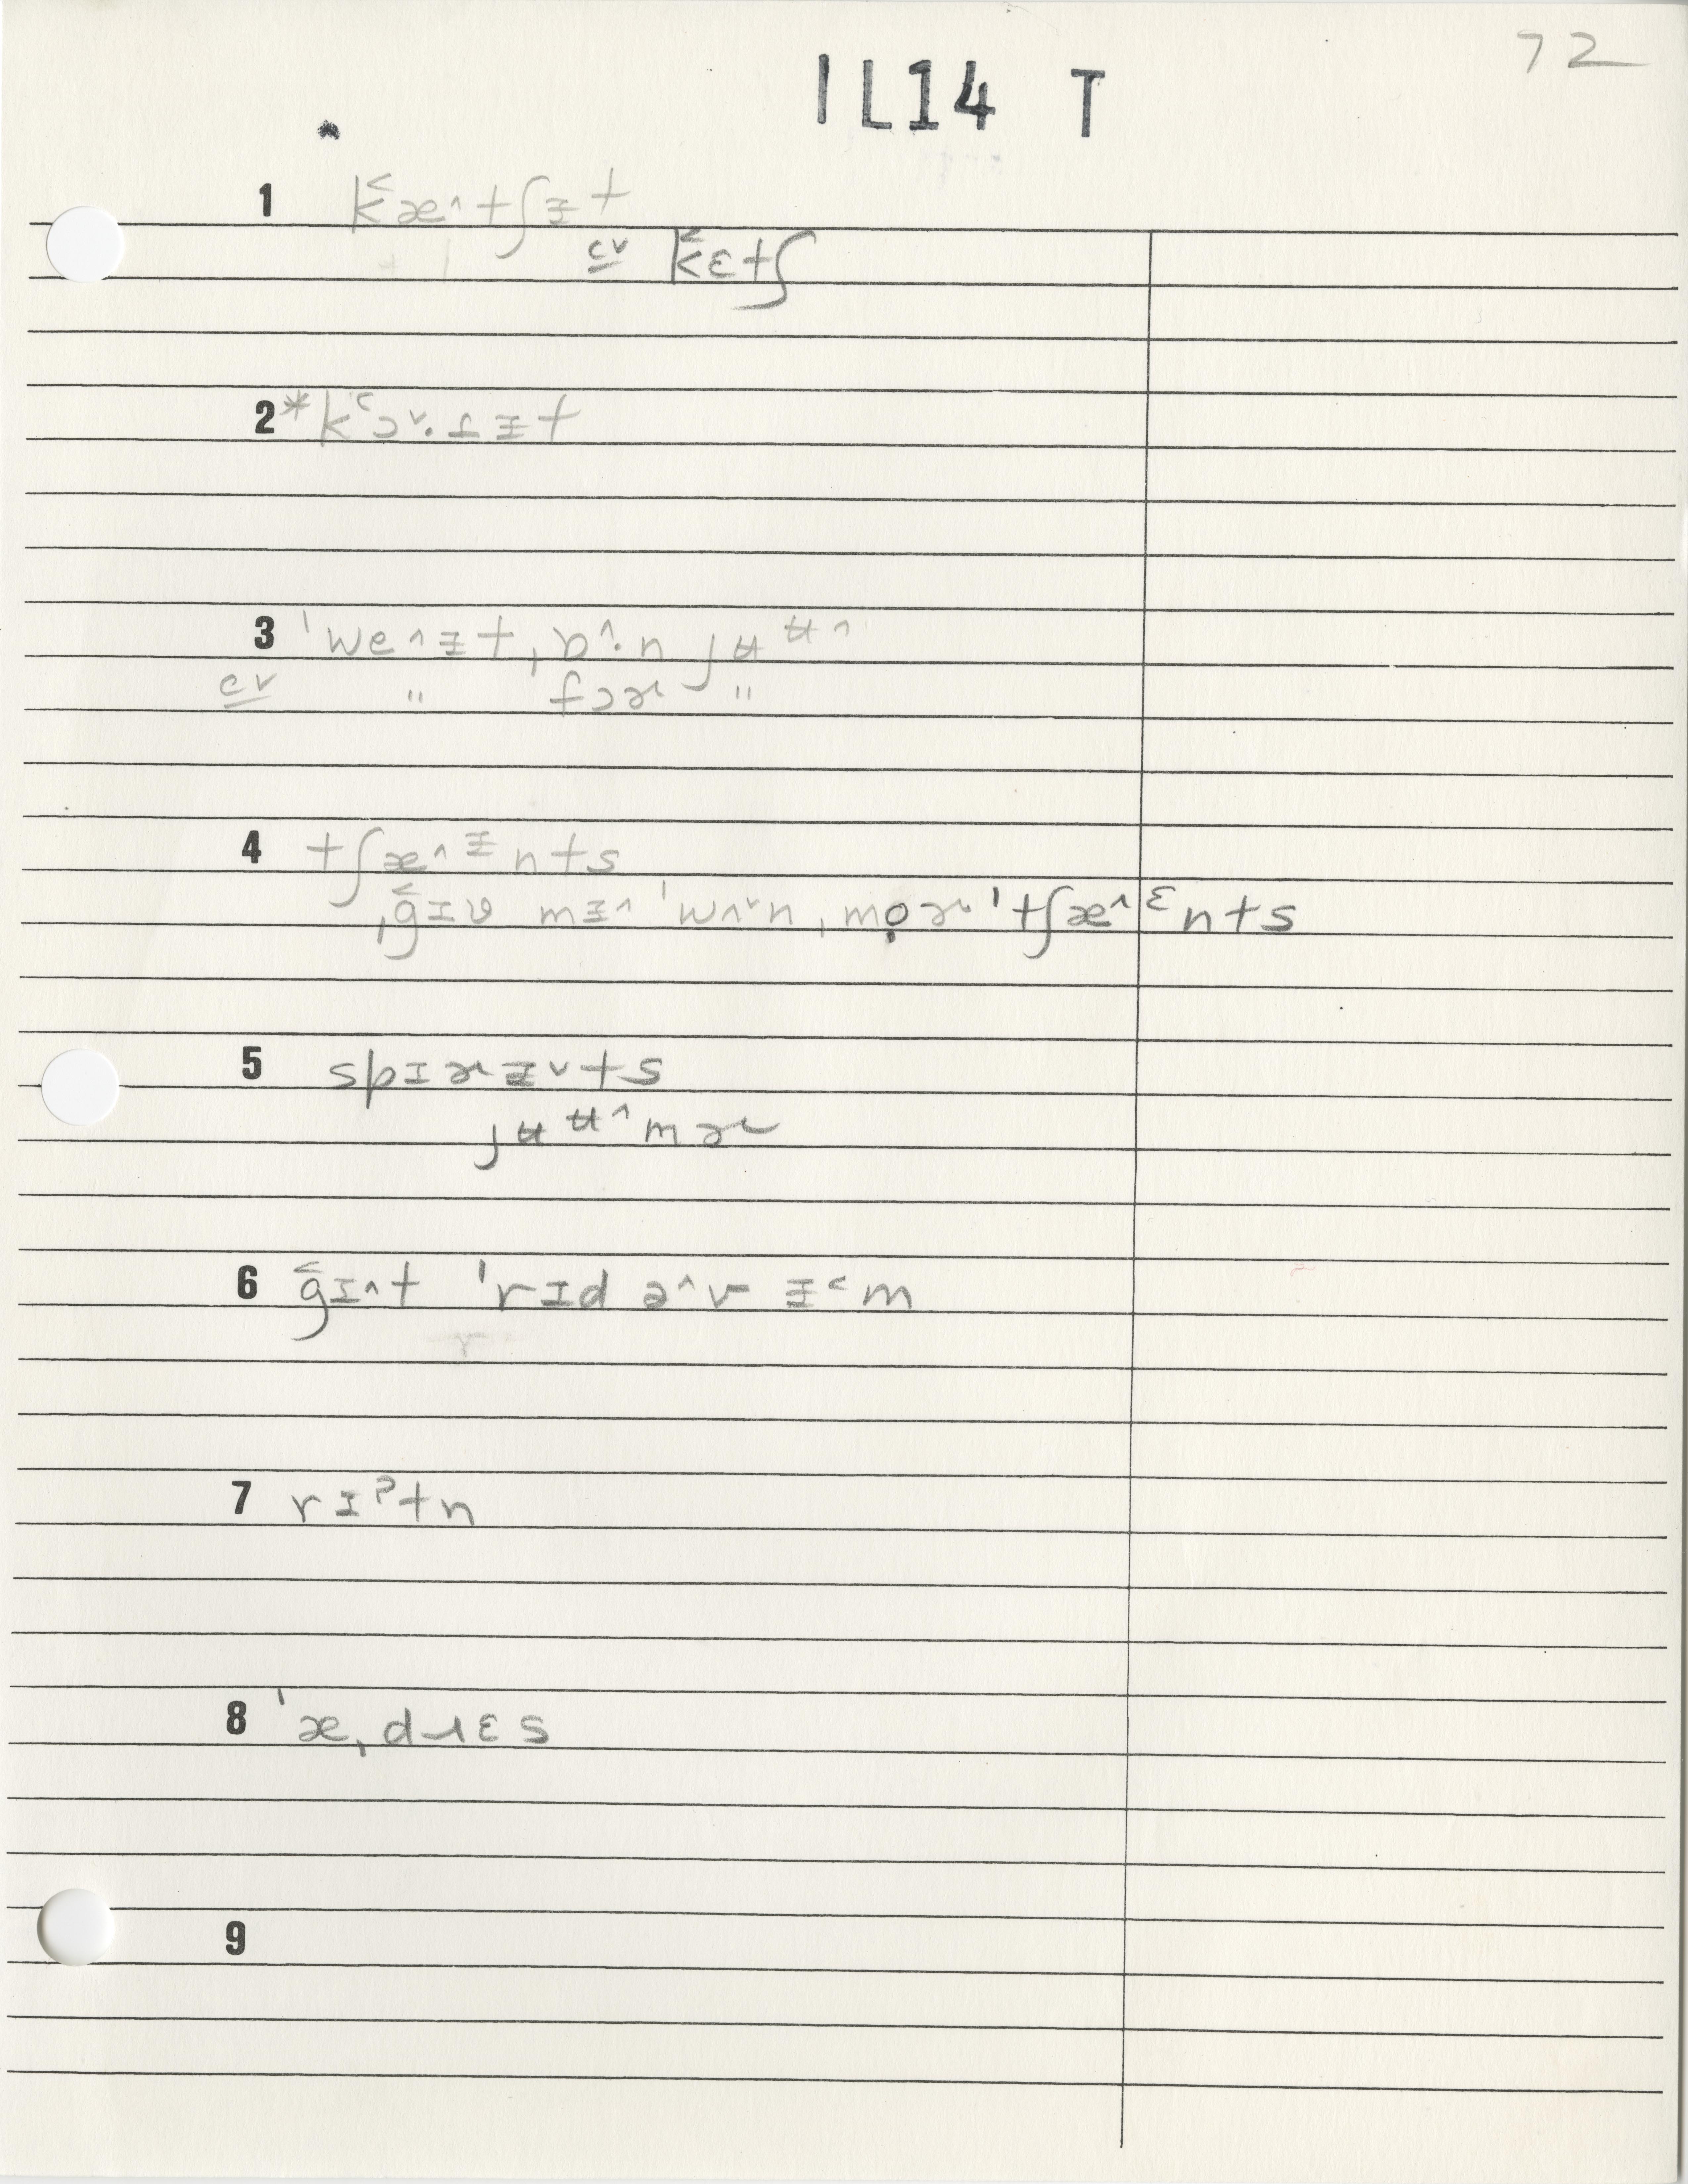 72
IL14 T
1 k̬æ^tʃɪ̵t
cv k̬ɛtʃ
2 *kᶜɔᵛ·ɪɪ̵t
3 ˈwe^ɪ̵t ˌɒ^·n jʉᵗʉ^
cv " fɔɚ "
4 tʃæ^ᶦ̵nts
ˌg̬ɪv mɪ̵^ ˈwʌᵛn ˌmo̹ɚ ˈtʃæ^ᵋnts
5 spɪɚɪ̵ᵛts
jʉʉ^mɚ
6 g̬ɪ^t ˈrɪd ə^v ɪ̵˂m
7 rɪˀtn
8 ˈæˌdɹɛs
9